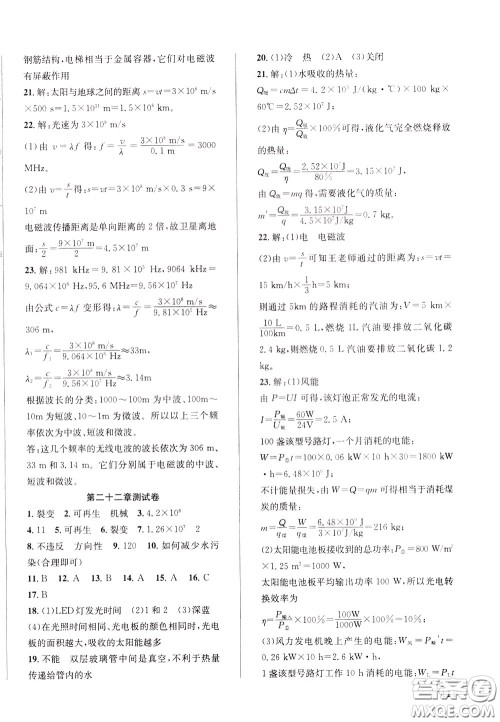 钢筋结构,电梯相当于金属容器,它们对电磁波
有屏蔽作用
21. 解:太阳与地球之间的距离 s=vt=3×10⁸ m/s
×500 s=1.5×10¹¹ m=1.5×10⁸ km。
22. 解:光速为 3×10⁸ m/s
(1)由 v=λf 得:f=v/λ=3×10⁸ m/s / 0.1 m=3000
MHz。
(2)由 v=s/t 得:s=vt=3×10⁸ m/s×0.3 s=9×
10⁷ m
电磁波传播距离是单向距离的 2 倍,故卫星离地
面:s/2=9×10⁷ m/2=4.5×10⁷ m。
23. 解:981 kHz=9.81×10⁵ Hz,9064 kHz=
9.064×10⁶ Hz,95.6 MHz=9.56×10⁷ Hz。
由公式 c=λf 变形得:λ=c/f=3×10⁸ m/s / 9.81×10⁵ Hz≈
306 m,
λ₁=c/f₁=3×10⁸ m/s / 9.064×10⁶ Hz≈33m,
λ₂=c/f₂=3×10⁸ m/s / 9.56×10⁷ Hz≈3.14m。
根据波长的分类:1000~100m为中波,100~
10m 为短波,10~1m为微波。所以以上三个频
率依次为中波、短波和微波。
答:这几个频率的无线电波的波长依次为 306 m、
33 m 和 3.14 m。它们分别属于电磁波中的中波、
短波和微波。
第二十二章测试卷
1. 裂变 2. 可再生 机械 3. 4.2×10⁸
4. 11 5. 可再生 6. 裂变 7. 1.26×10⁵
8. 不违反 方向性 9. 120 10. 如何减少水污
染(合理即可)
11. B 12. A 13. B 14. B 15. A 16. C
17. B
18. (1)LED灯发光时间 (2)1和2 (3)深蓝
(4)在光照时间相同时,光电板的颜色相同时,光电
板面积越大,吸收的太阳能越多
19. 不能 双层玻璃管中间是真空,不利于热量
传递给管内的水
20. (1)冷 热 (2)A (3)关闭
21. 解:(1)水吸收的热量:
Q吸=cmΔt=4.2×10³ J/(kg·℃)×100 kg×
60℃=2.52×10⁷J
(2)由 η=Q吸/Q放×100%可得,液化气完全燃烧释放
的热量:
Q放=Q吸/η=2.52×10⁷J/80%=3.15×10⁷J。
由 Q放=mq 得,需要液化气的质量:
m′=Q放/q=3.15×10⁷J/4.5×10⁷J/kg=0.7 kg。
22. 解:(1)电 电磁波
(2)由 v=s/t 可知王老师通过的距离为:s=vt=15
km/h×1/3 h=5 km。
则通过 5km 的路程消耗的汽油为:V=5 km
×10 L/100 km=0.5 L,1L汽油要排放二氧化碳
2.4 kg,则燃烧 0.5 L 汽油要排放二氧化碳 1.2
kg。
23. 解:(1)风能
由 P=UI 可得,该灯泡正常发光的电流:
I=P/U=60W/24V=2.5 A。
100 盏该型号路灯,一个月消耗的电能:
W=P总t=100×0.06 kW×10 h×30=1800 kW·
h=6.48×10⁹J
不计能量损失,由 W=Q=qm 可得相当于消耗煤
炭的质量:
m=Q/q=W/q=6.48×10⁹J/3×10⁷J/kg=216 kg。
(2)太阳能电池板接收到的总功率:P总=800W/m²
×1.25 m²=1000 W。
太阳能电池板平均输出功率 100 W,所以光电转
换效率为
η=×100%=100W/1000W×100%=10%。
(3)风力发电机晚上产生的电能:W风=P风t
=0.26 kW×10 h=2.6 kW·h
1 盏该型号路灯工作 10 h 消耗的电能:W灯=P灯t